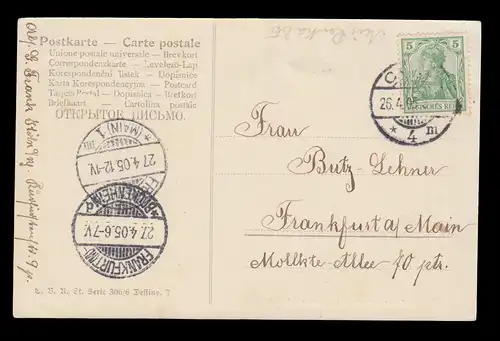 Postkarte — Carte postale
Union postale universelle — Brevkort
Correspondenzkarte — Levelező-Lap
Korespondenční lístek — Dopisnice
Karta Korespondencyjna — Postcard
Tarjeta Postal — Dopisnica — Bretkort
Briefkaart — Cartolina postale
ОТКРЫТОЕ ПИСЬМО.
5 5
26.4.05
4 m
(MAIN) 1
27.4.05.12-1V.
BOCKENHEIM
27.4.05.6-7V.
FRANKFURT (M)
Frau
Butz-Lehner
Frankfurt a/ Main
Mollkte Allee 70 ptr.
Serie 306/6 Dessins. 7
Abs. Frank